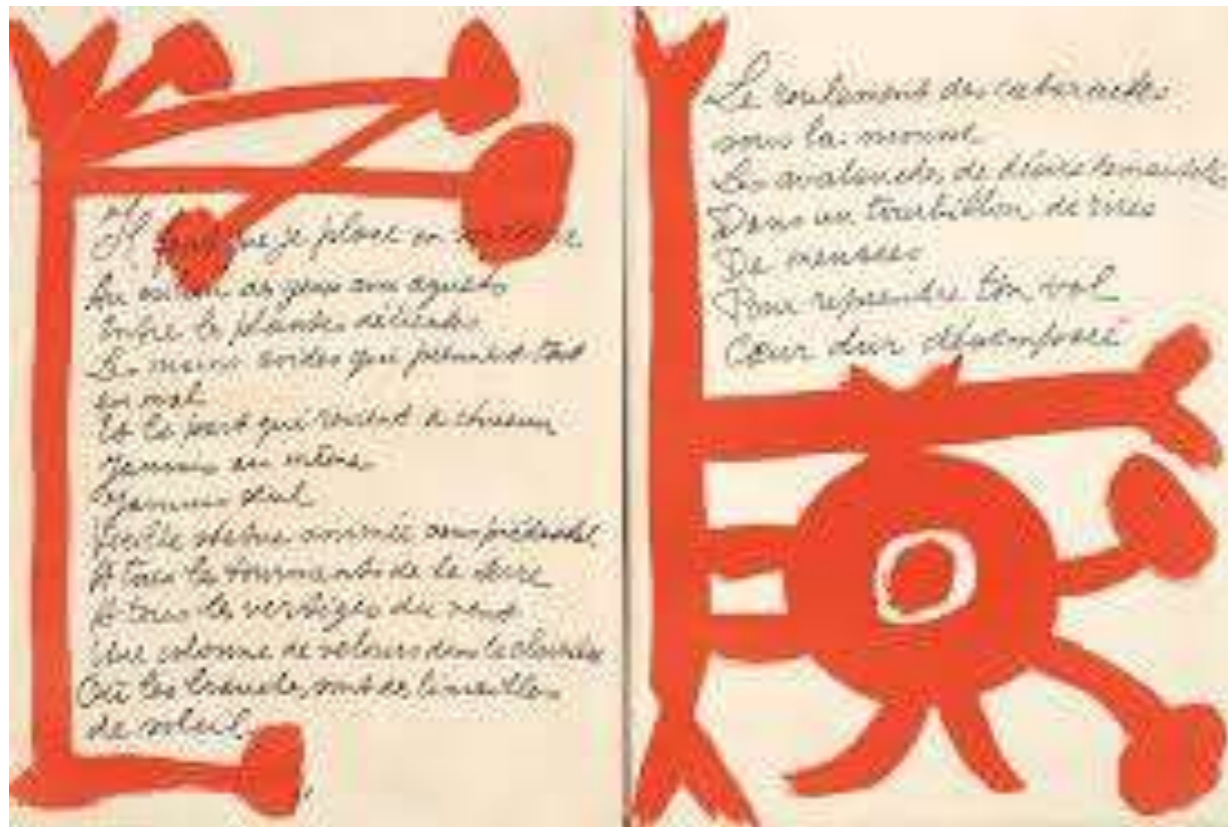 Il que je place en
Au milieu des yeux aux aguets
Entre les plantes délicates
Les mains avides qui prennent tout
en mal
Et le
Jamais
Jamais seul
Vieille statue animée sans piédestal
A tous les tourmants de la terre
A tous les vertiges du vent
Une colonne de velours dans la clairière
Où les branches sont de
de soleil
Le roulement des cataractes
sous la mousse
Les avalanches de désirs
Dans un tourbillon de rires
De menaces
Pour reprendre ton vol
Cœur dur décomposé